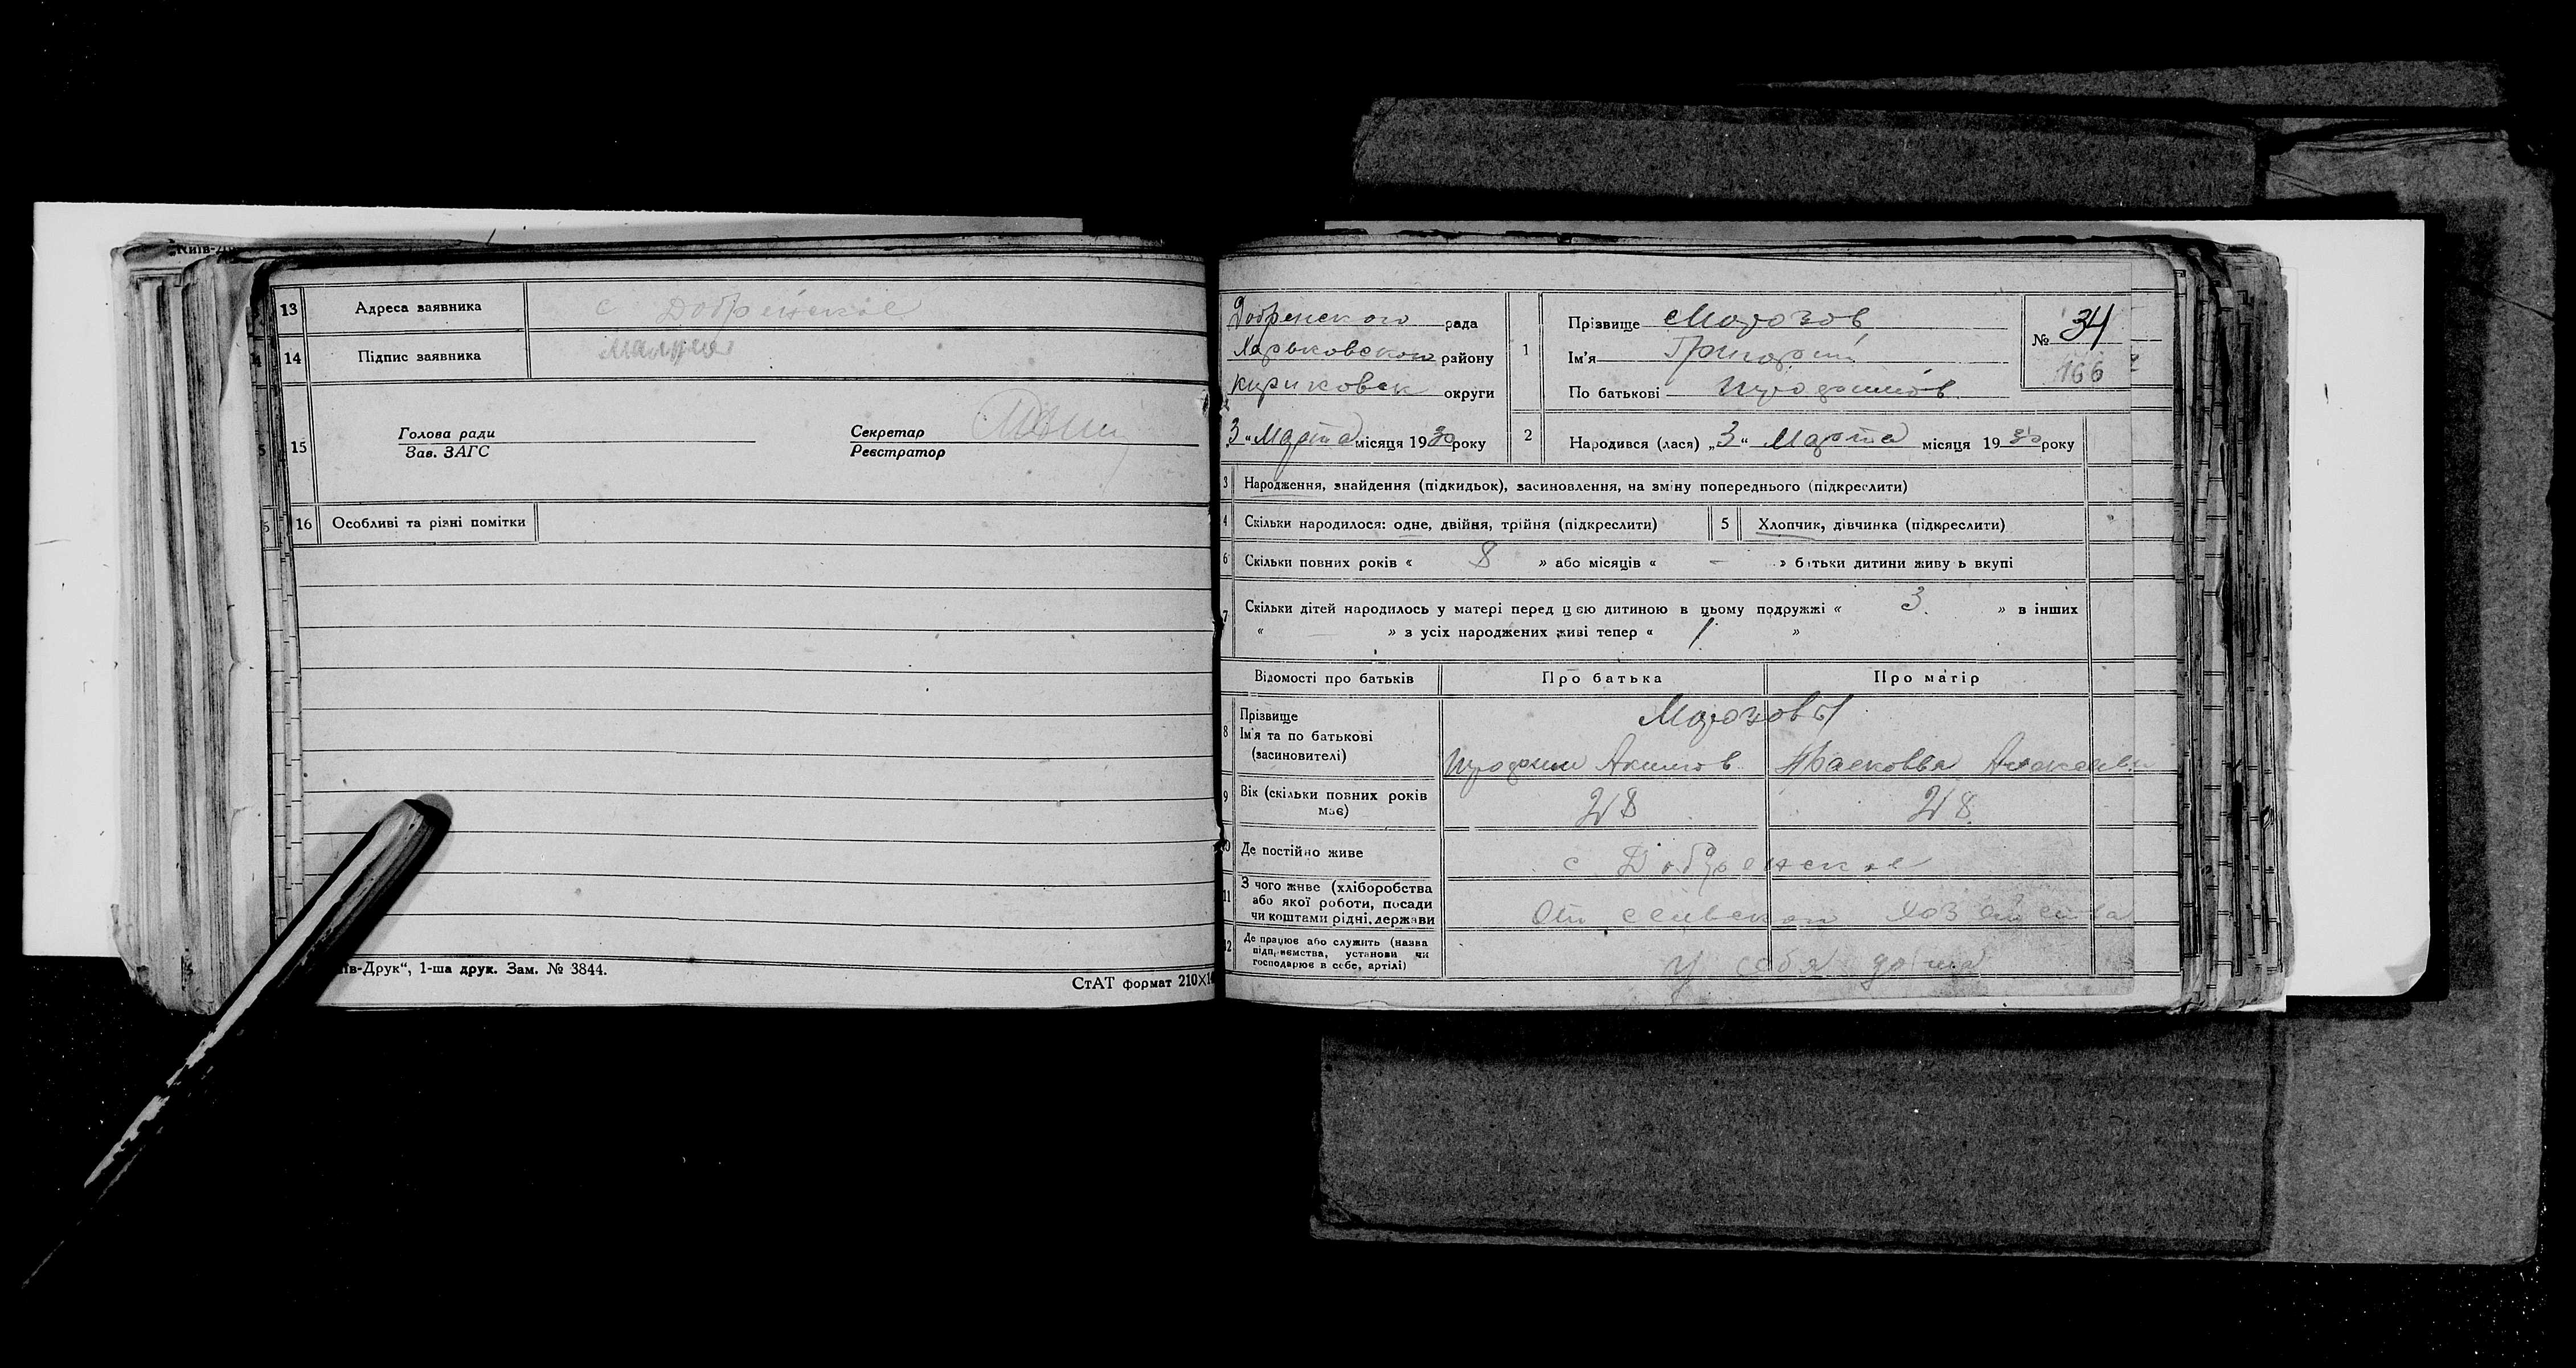 Київ-Др
13 Адреса заявника с Добренское
14 Підпис заявника
15 Голова ради
Зав. ЗАГС
Секретар
Реєстратор
16 Особливі та різні помітки
їв-Друк“, 1-ша друк. Зам. № 3844.
СтАТ формат 210×14
Добренского рада
Харьковского району
округи
„3“ Марта місяця 1930 року
1 Прізвище Морозов
Ім'я Григорий
По батькові
№ 34
166
2 Народився (лася) „3“ Марта місяця 1930 року
3 Народження, знайдення (підкидьок), засиновлення, на зміну попереднього (підкреслити)
4 Скільки народилося: одне, двійня, трійня (підкреслити)
5 Хлопчик, дівчинка (підкреслити)
6 Скільки повних років « 8 » або місяців « — » батьки дитини живуть вкупі
7 Скільки дітей народилось у матері перед цією дитиною в цьому подружжі « 3 » в інших
« — » з усіх народжених живі тепер « 1 »
Відомості про батьків Про батька Про матір
8 Прізвище
Ім'я та по батькові
(засиновителі)
Морозовы
Акимов Прасковья Алексеевн
9 Вік (скільки повних років
має)
28 28
10 Де постійно живе с Добренское
11 З чого живе (хліборобства
або якої роботи, посади
чи коштами рідні, держави
От сельского хозяйства
12 Де працює або служить (назва
підприємства, установи чи
господарює в себе, артілі)
у себя дома